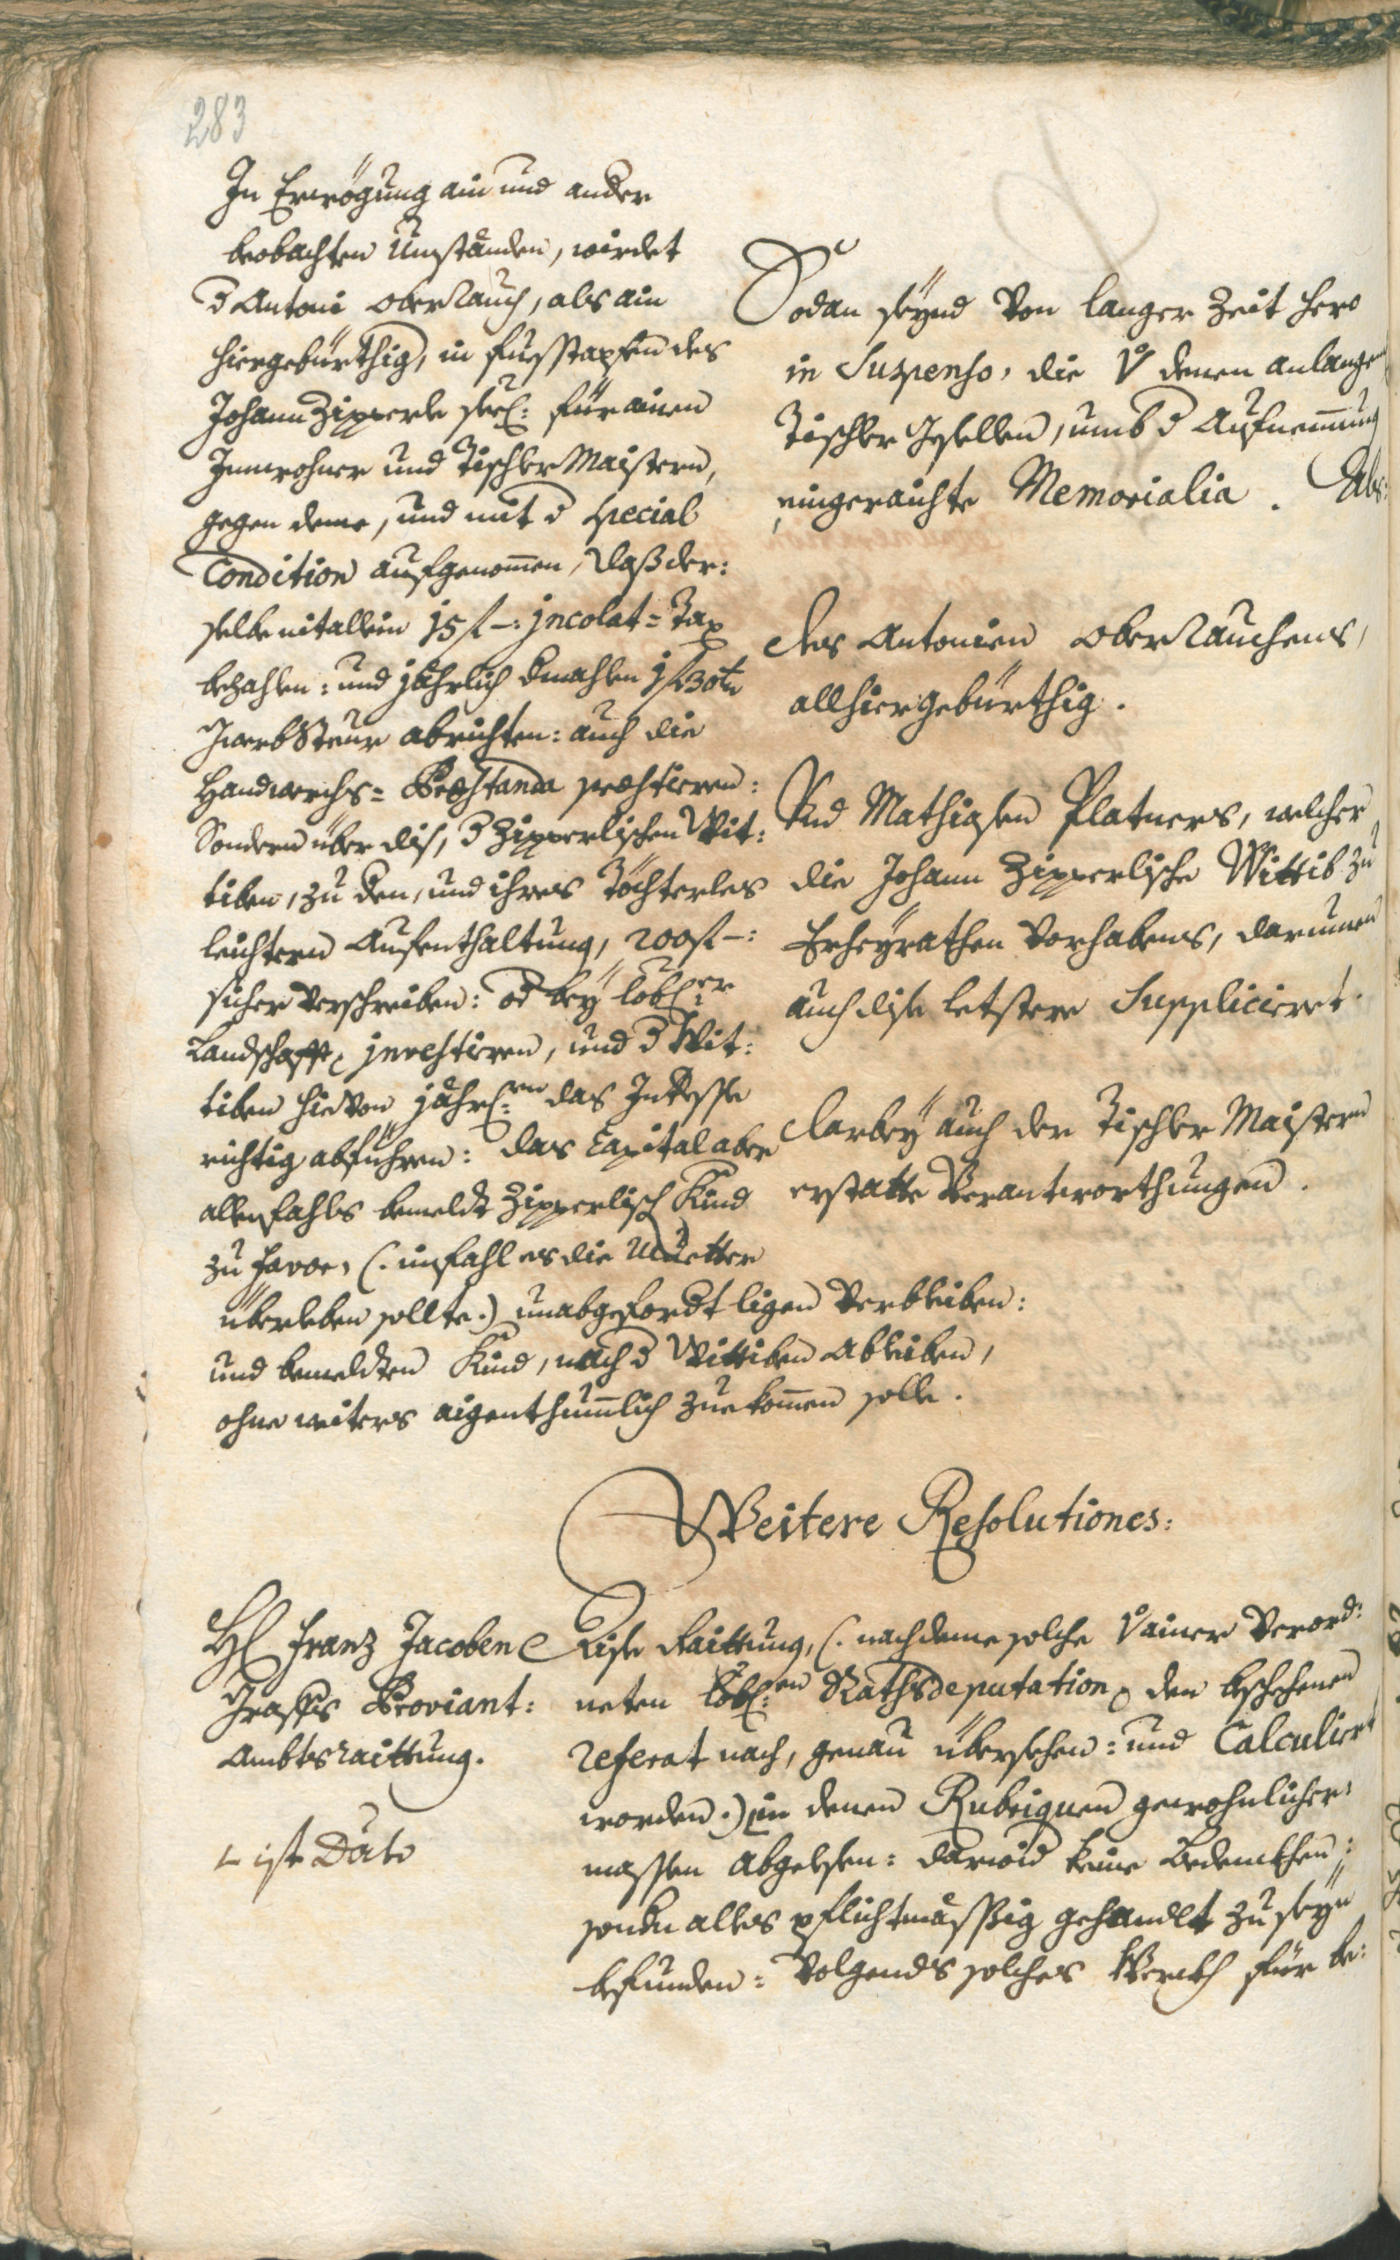 283
In Erwögung ain und ander
beobachten Umständen, wirdet
d Antoni Oberrauch, als ain
hiergebürthig, in fuesstapfen des
Johann Zipperle seel: für ainen
Innwohner und Tischler Maistern,
gegen deme, und mit d special
Condition aufgenom̅en, daß der:
selbe nit allein 15 f –: jncolat= Tax
bezahlen: und jährlich
Steur abrichten: auch die
Handwerchs= Præstanda præstieren:
Sondern über dis, d Zipperlischen Wit:
tiben, zu den, und ihres Töchterles
leichtern Aufenthaltung, 200 f –:
sicher verschreiben: od bey löbl:er
Landschafft jnvestieren, und d Wit:
tiben hievon jährl:en das Interesse
richtig abführen: das Capital aber
allenfahls bemeldt Zipperlisch Kind
zu favor, (: imfahl es die Muetter
überleben sollte:) unabgefordt ligen verbleiben:
und bemeldten Kind, nach d Wittiben Ableiben,
ohne weiters aigenthum̅lich zuekom̅en solle.
Sodan seynd von langer Zeit hero
in Suspenso, die v denen anlangen
Tischler Gesellen, umb d Aufnem̅ung
eingeraichte Memorialia. Als:
des Antonien Oberrauchens,
allhiergebürthig.
Und Mathiasen Platners, welcher
die Johann Zipperlische Wittib zu
Erheyrathen vorhabens, darumen
auch dise letstere Supplicieret.
darbey auch der Tischler Maistern
erstatte Verantworthungen.
Weitere Resolutiones:
H Franz Jacoben
Graffs Proviant:
Ambtsraittung.
ist Dato
Dise Raittung, (: nachdeme solche v ainer verord:
neten löbl:en Rathsdeputation, den beschehenen
referat nach, genau übersehen: und Calculiert
worden:) in denen Rubriquen gewohnlicher:
massen abgelesen: darwid keine Bedenkhen:
sondn alles pflichtmässig gehandlt zu seyn
befunden: volgends solches Werch für be: